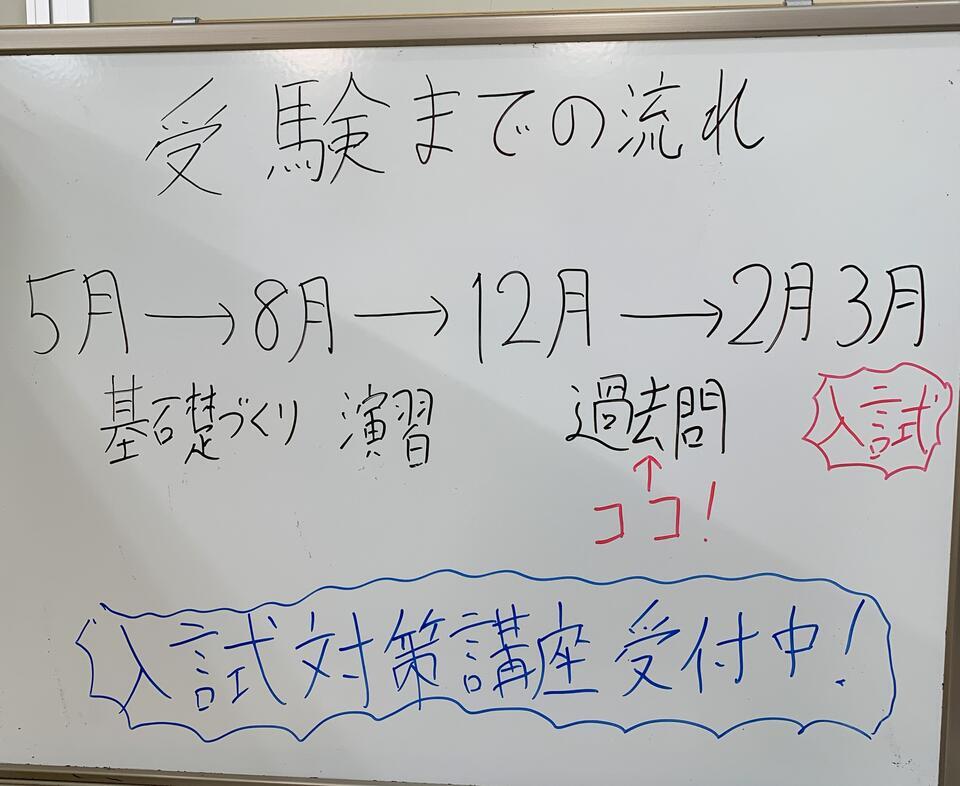 受験までの流れ
5月→8月→12月→2月3月
基礎づくり 演習 過去問 入試
↑
ココ!
入試対策講座受付中!